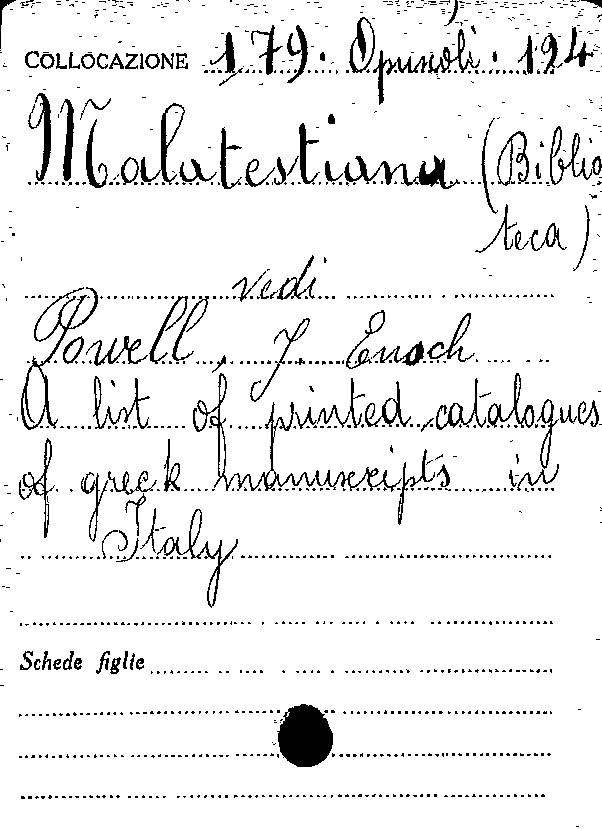 COLLOCAZIONE 179. Opuscoli. 194
Malatestiana (Biblio
teca)
vedi
Powell, J. Enoch
A list of printed catalogues
of greek manuscripts in
Italy
Schede figlie